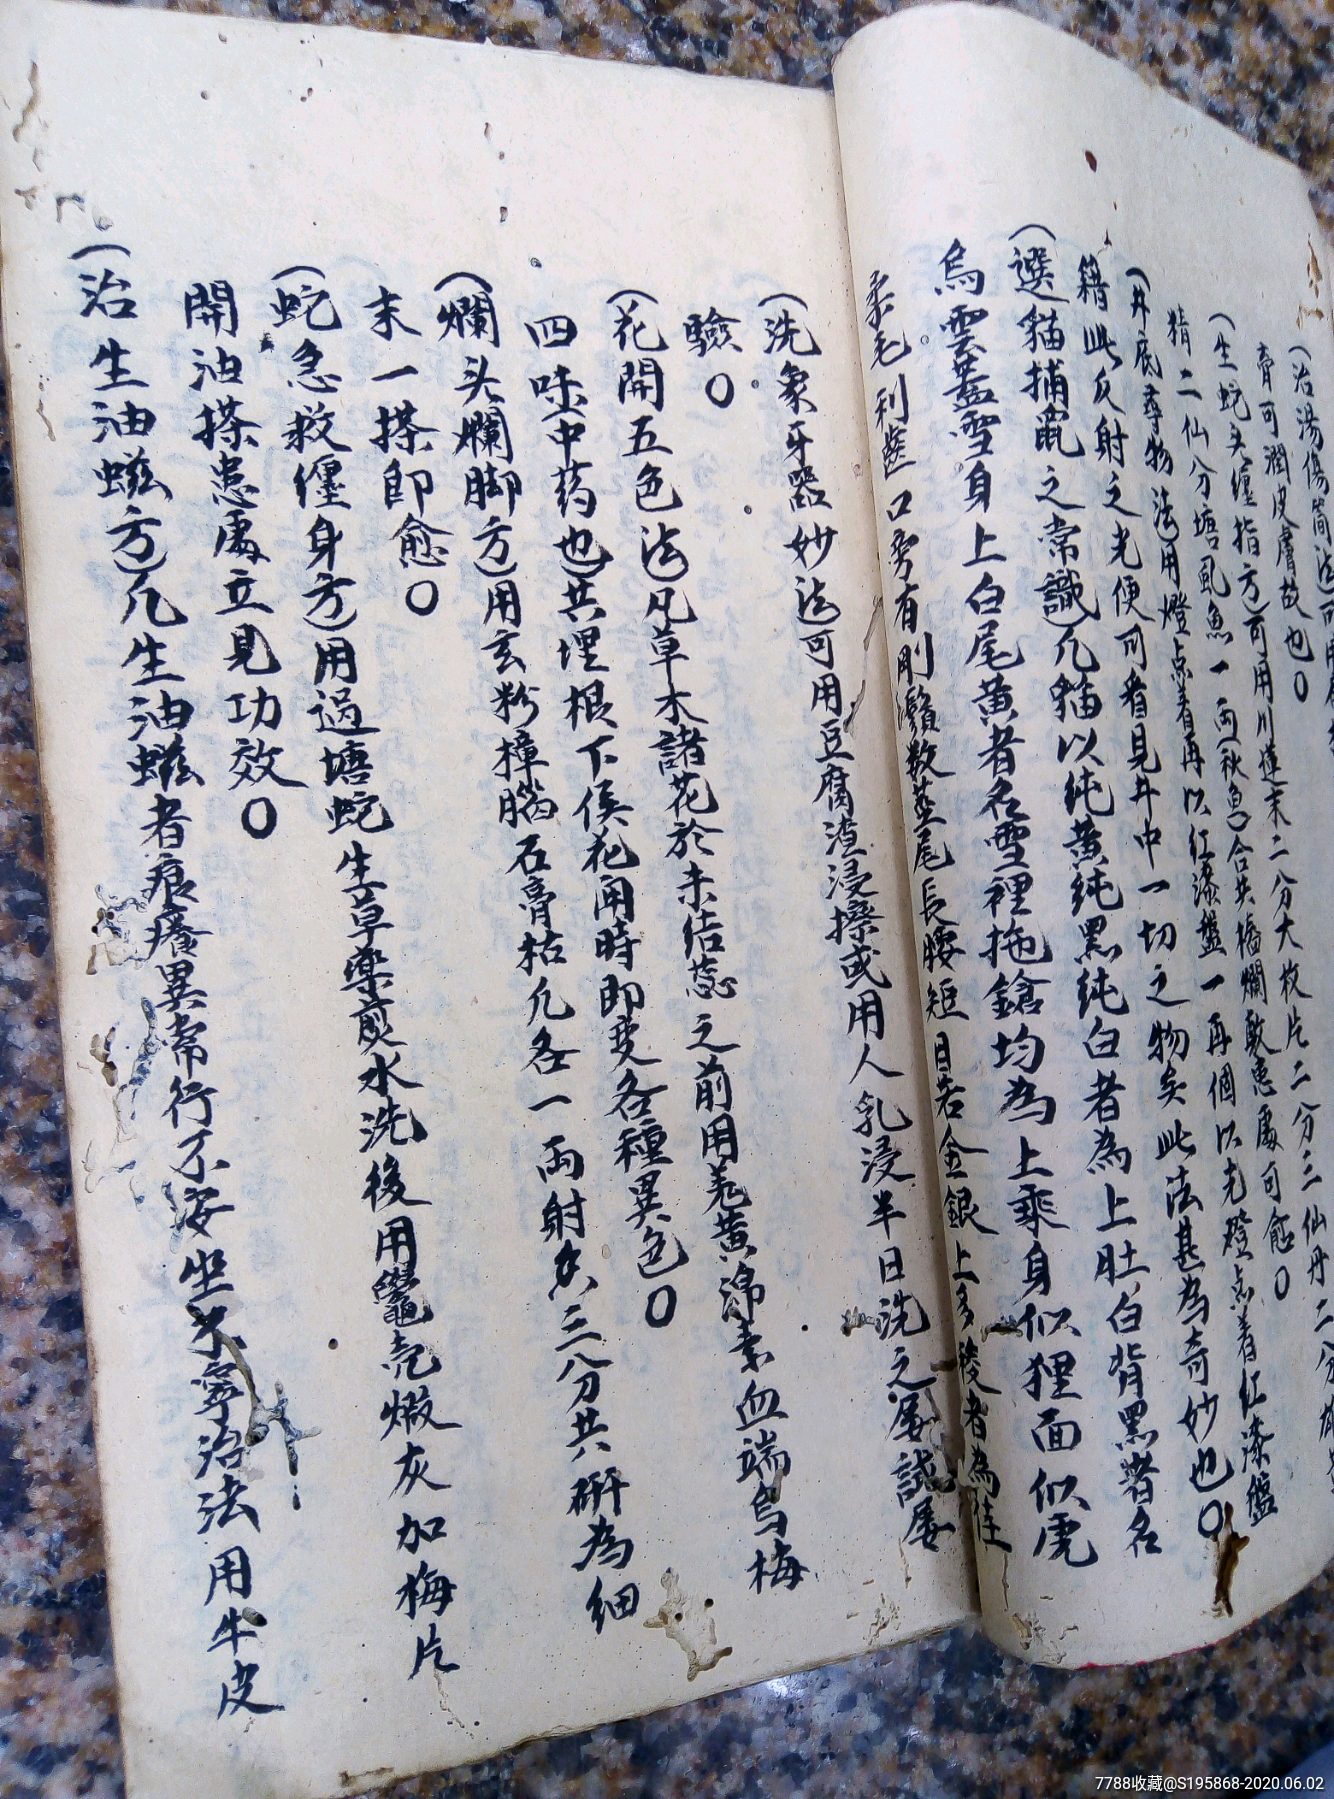 (治湯傷簡法)可用
膏可潤皮膚故也〇
(生蛇头纏指方)可用川連末二分大枚片二分三仙丹二分
猪二仙分塘虱魚一両(秋魚)合共樁爛敷患處可愈〇
(井底尋物法)用燈点着再以紅漆盤一再個以光燈点着紅漆盤
籍此反射之光便可看見井中一切之物矣此法甚為奇妙也〇
(選貓捕鼠之常識)凡貓以純黄純黑純白者為上肚白背黑者名
烏雲蓋雪身上白尾黄者名雪裡拖鎗均為上乘身似狸面似虎
柔毛利齒口旁有剛鬚数莖尾長腰短目若金銀上多稜者為佳
(洗象牙器妙法)可用豆腐渣浸擦或用人乳浸半日洗之屡試屡
驗〇
(花開五色法)凡草木諸花於未结蕊之前用羗黄綿素血端烏梅
四味中药也共埋根下俟花開時即变各種異色〇
(爛头爛脚方)用玄粉樟腦石膏枯凡各一両射香三分共研為细
末一搽即愈〇
(蛇急救纏身方)用過塘蛇生草藥煎水洗後用鼈壳煅灰加梅片
開油搽患處立見功效〇
(治生油螆方)凡生油螆者痕癢異常行不安坐不寧治法用牛皮
7788收藏@S195868-2020.06.02